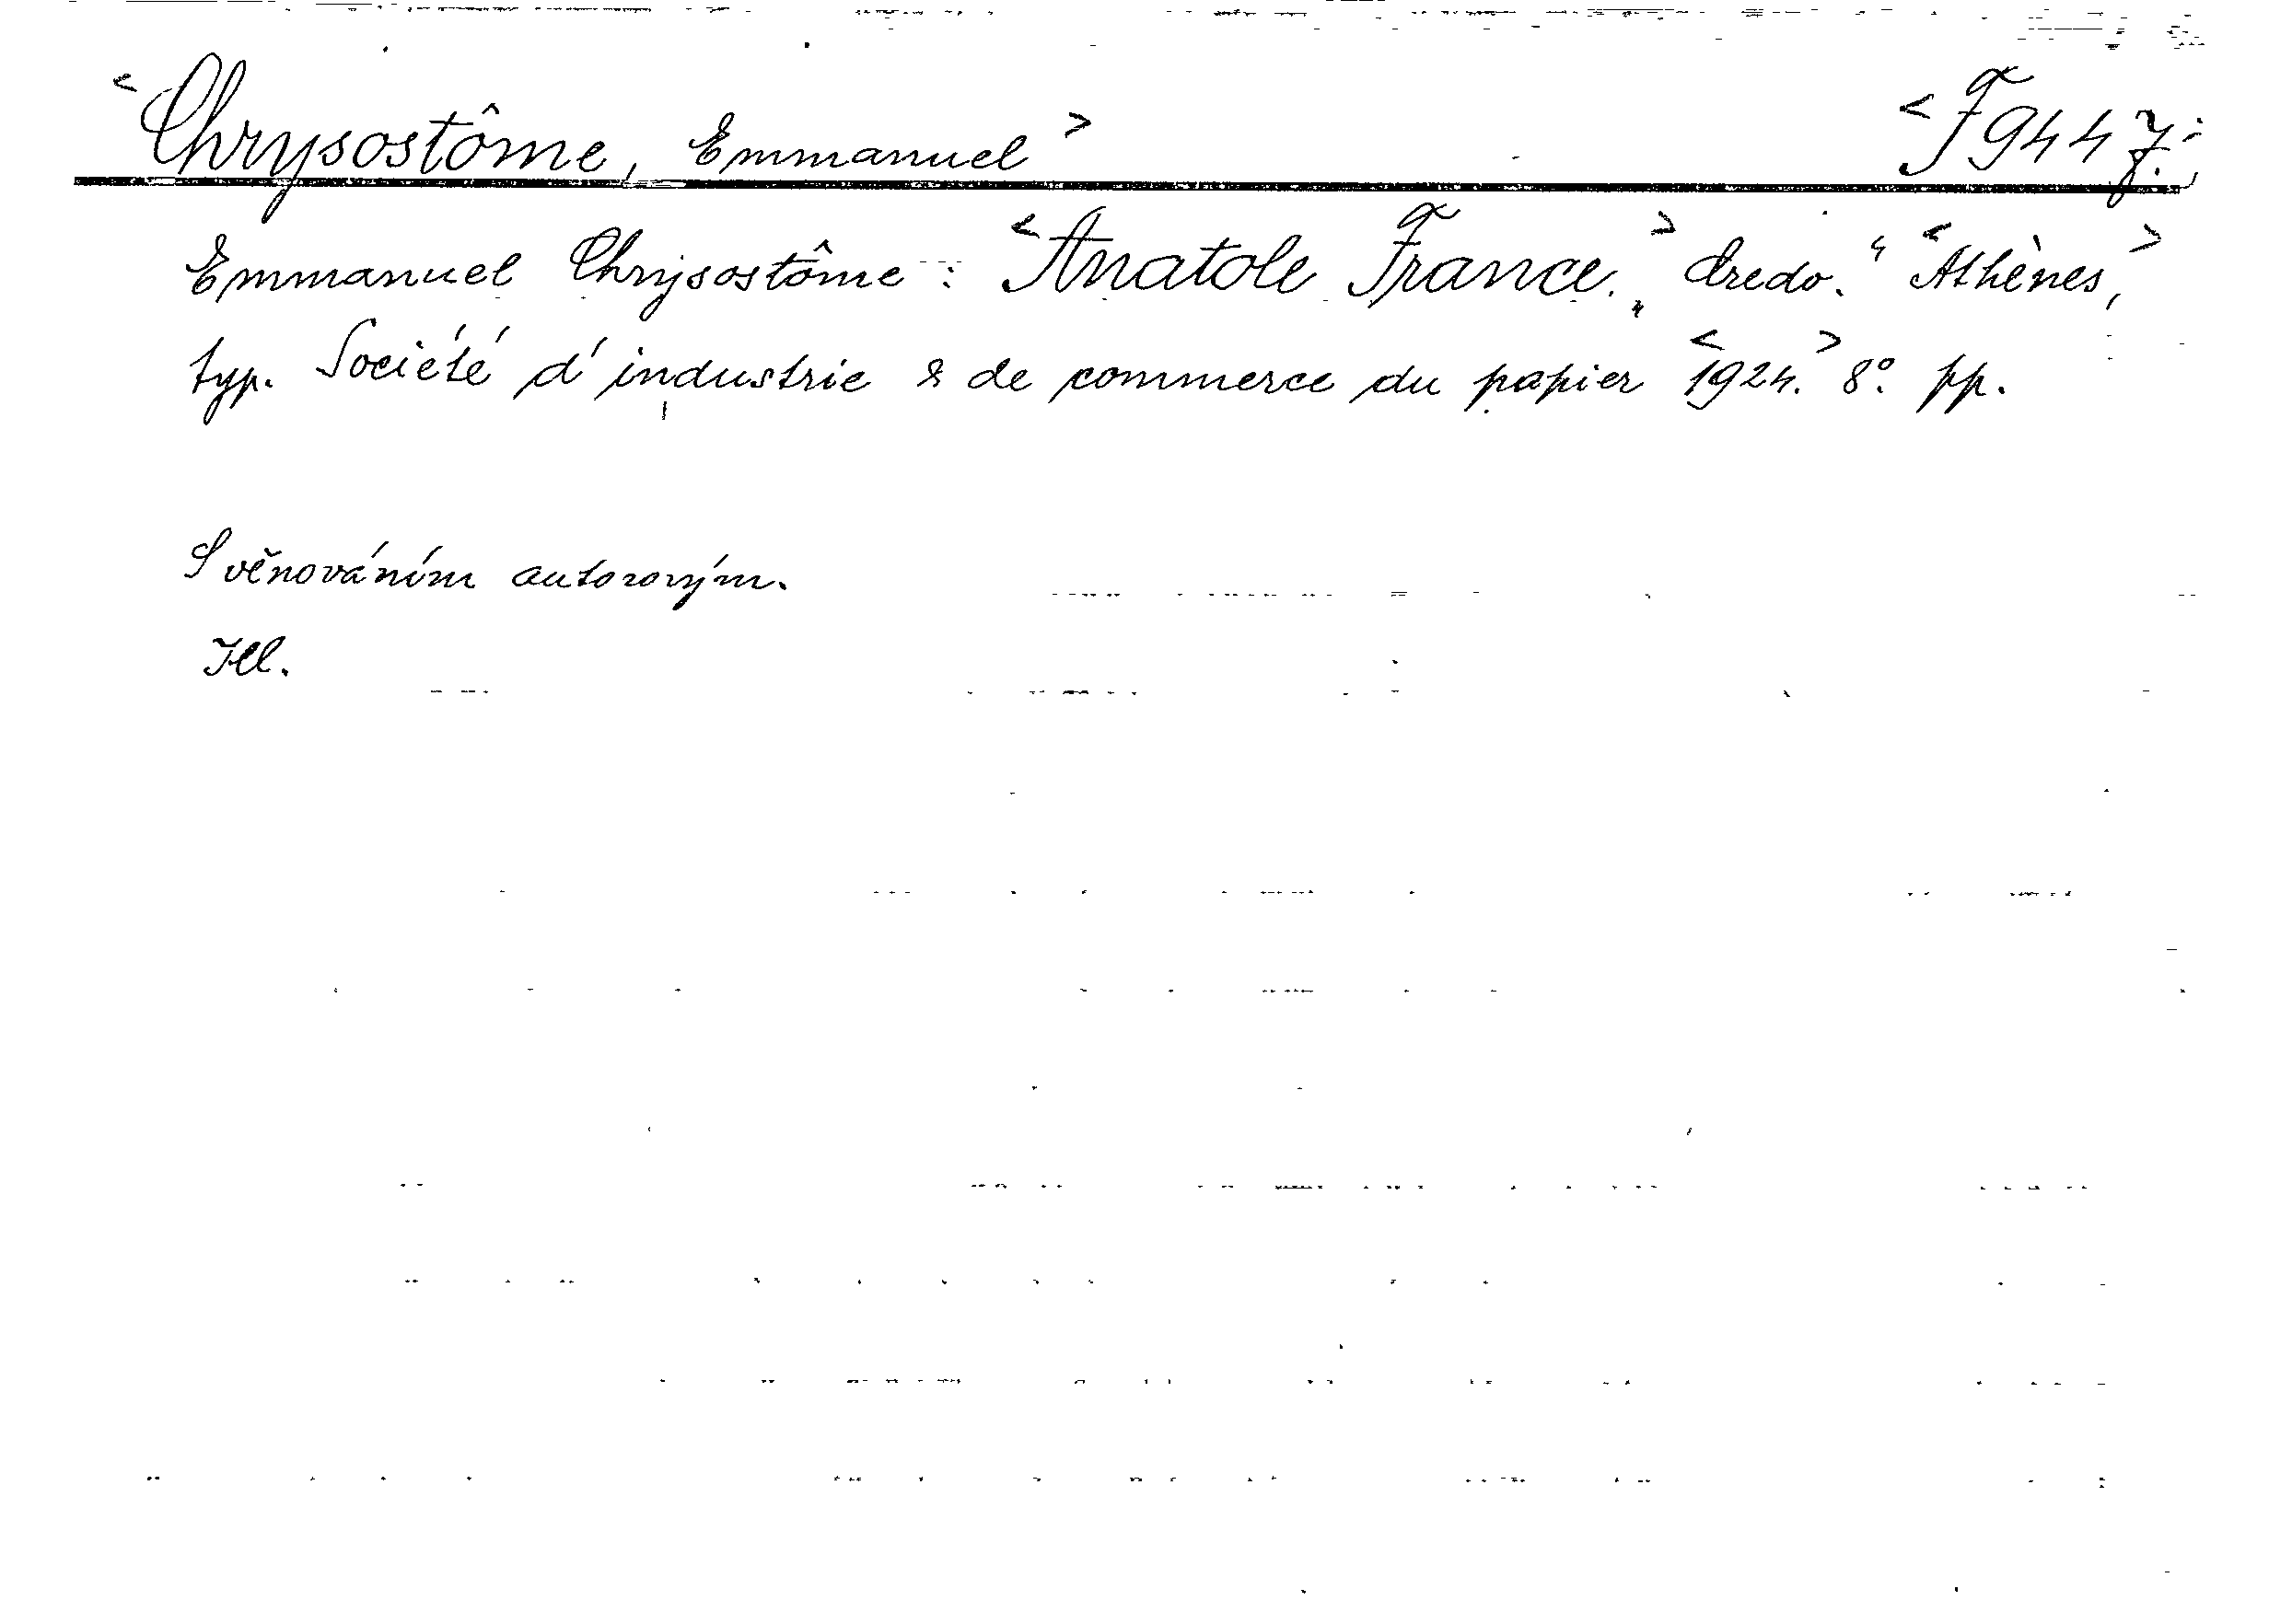 <Chrysostôme, Emmanuel> <F 9447.
Emmanuel Chrysostôme: <Anatole France.> „Credo.“ <Athènes,>
typ. Société d'industrie & de commerce du papier <1924.> 8°. pp.
S věnováním autorovým.
Ill.